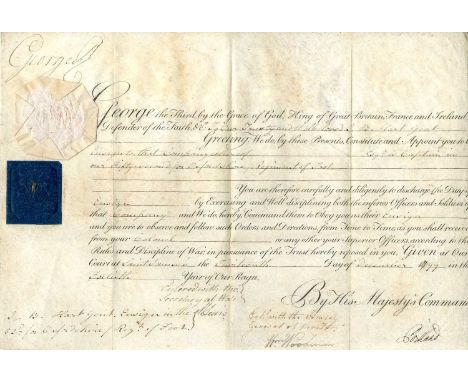 George R
George the Third by the Grace of God, King of Great Britain, France and Ireland
Defender of the Faith, &c. To Our Trusty and Wellbeloved B. Hart Gent
Greeting: We do, by these Presents, Constitute and Appoint you to
Ensign to that Company Captain in
our Fifty Second or Oxfordshire Regiment of Foot
You are therefore carefully and diligently to discharge the Duty
Ensign by Exercising and Well disciplining both the inferior Officers and Soldiers
that Company and We do hereby Command them to Obey you as their Ensign
and you are to observe and follow such Orders and Directions, from Time to Time, as you shall receive
from your Colonel or any other your Superior Officers according to the
Rules and Discipline of War in pursuance of the Trust hereby reposed in you. Given at Our
Court at Saint James's the Day of December 1799 in the
Year of Our Reign.
By His Majesty's Command
Secretary at War
Portland
B. Hart Gent. Ensign in the
52d or Oxfordshire Regt. of Foot
Ent'd with the
General of
Wm. Woodman